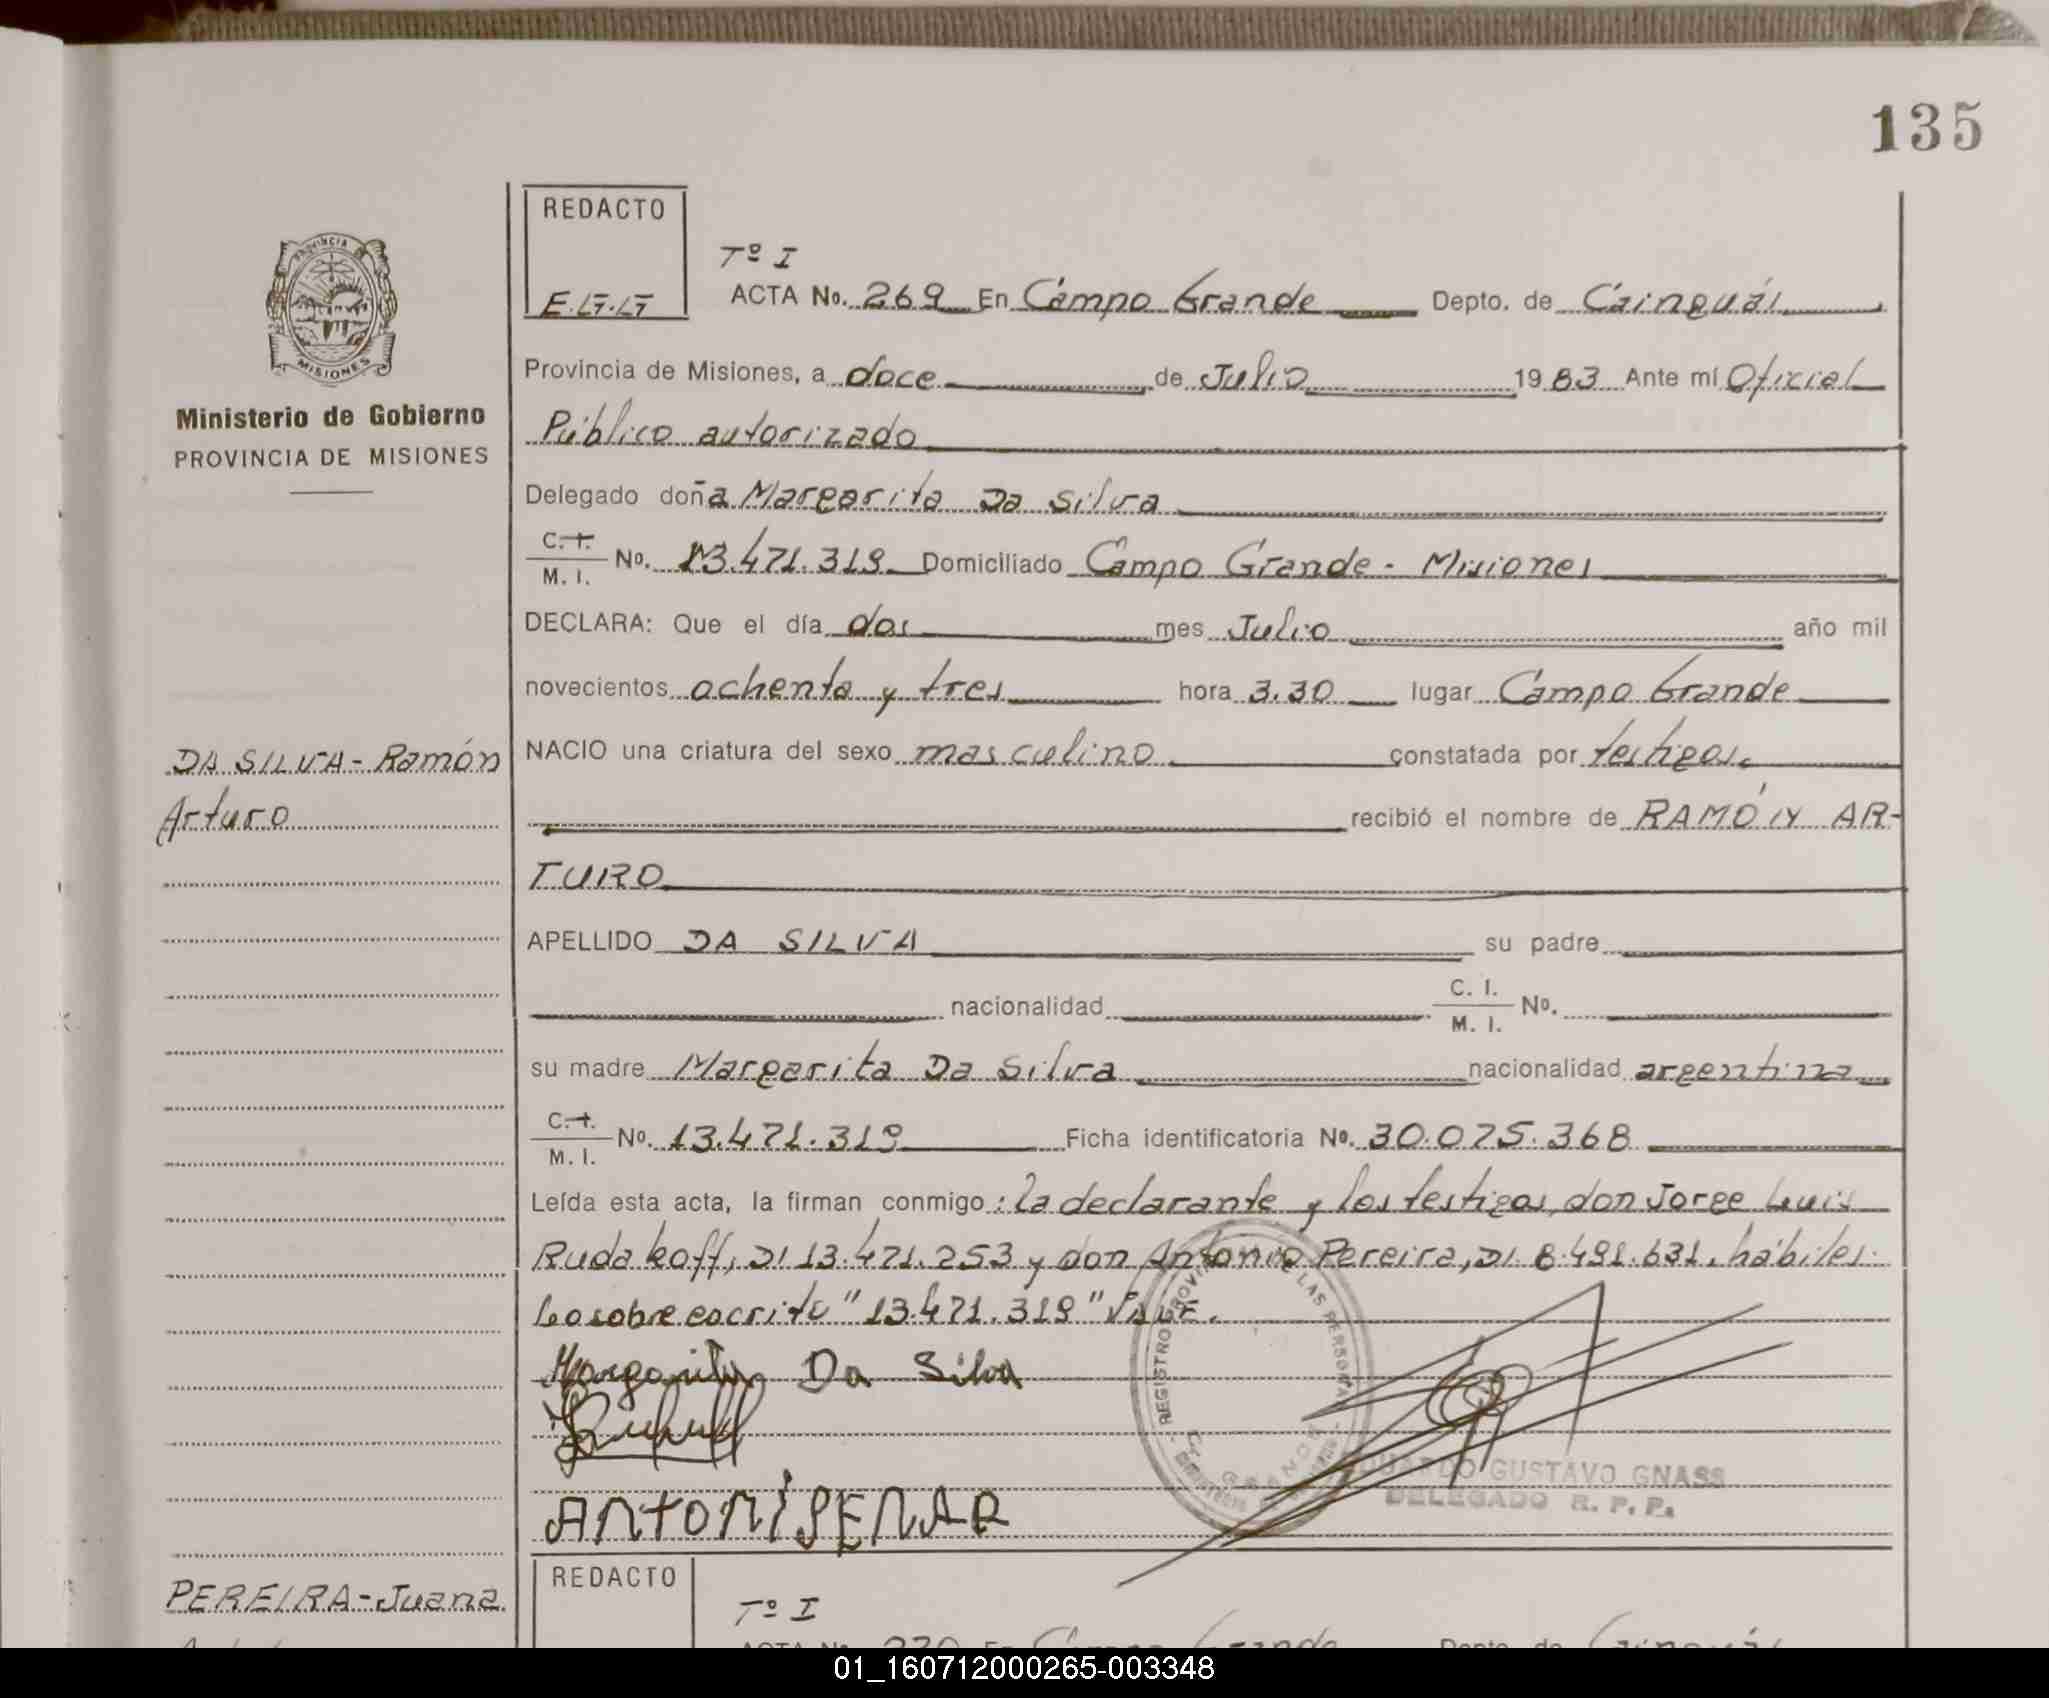 135
REDACTO
E.G.G
Tº I
ACTA No. 269 En Campo Grande Depto. de Cainguás
PROVINCIA
MISIONES
Ministerio de Gobierno
PROVINCIA DE MISIONES
Provincia de Misiones, a doce de Julio 1983 Ante mí Oficial
Público autorizado
Delegado doña Margarita Da Silva
C. I. M. I. No. 13.471.319 Domiciliado Campo Grande - Misiones
DECLARA: Que el día dos mes Julio año mil
novecientos ochenta y tres hora 3.30 lugar Campo Grande
DA SILVA - Ramón
Arturo
NACIO una criatura del sexo masculino constatada por testigos.
recibió el nombre de RAMÓN AR-
TURO
APELLIDO DA SILVA su padre
nacionalidad C. I. M. I. No.
su madre Margarita Da Silva nacionalidad argentina
C. I. M. I. No. 13.471.319 Ficha identificatoria No. 30.075.368
Leída esta acta, la firman conmigo: la declarante y los testigos, don Jorge Luis
Rudakoff, DI 13.471.253 y don Antonio Pereira, DI. 8.491.631, hábiles.
Lo sobre escrito "13.471.319" VALE.
Margarita Da Silva
ANTONI PENAR
REGISTRO PROVINCIAL DE LAS PERSONAS
GRANDE
EDUARDO GUSTAVO GNASS
DELEGADO R. P. P.
PEREIRA - Juana
REDACTO
Tº I
ACTA No. 270 En Campo Grande Depto. de Cainguás
01_160712000265-003348